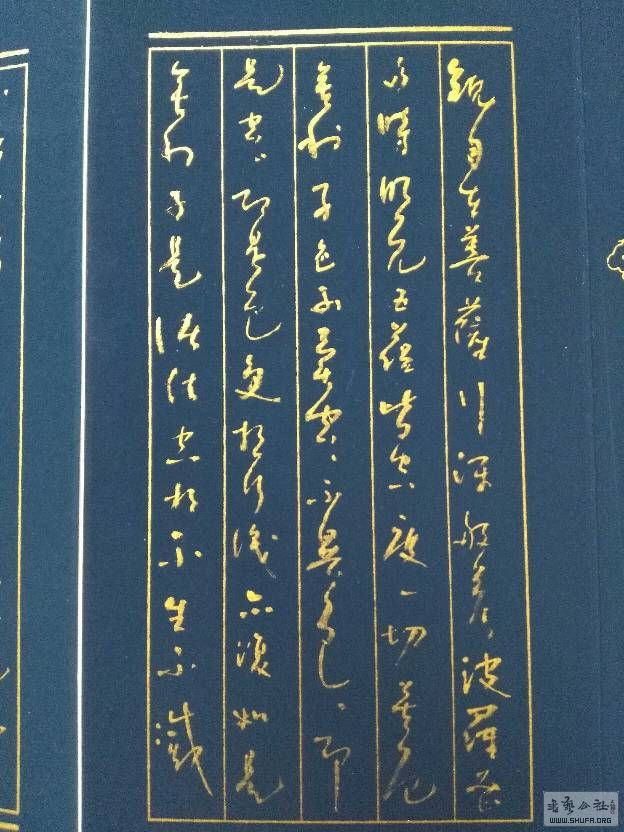 觀自在菩薩行深般若波羅蜜
多時照見五蘊皆空度一切苦厄
舍利子色不異空、不異色、即
是空、即是色受想行識亦復如是
舍利子是諸法空相不生不滅
書藝公社
WWW.SHUFA.ORG